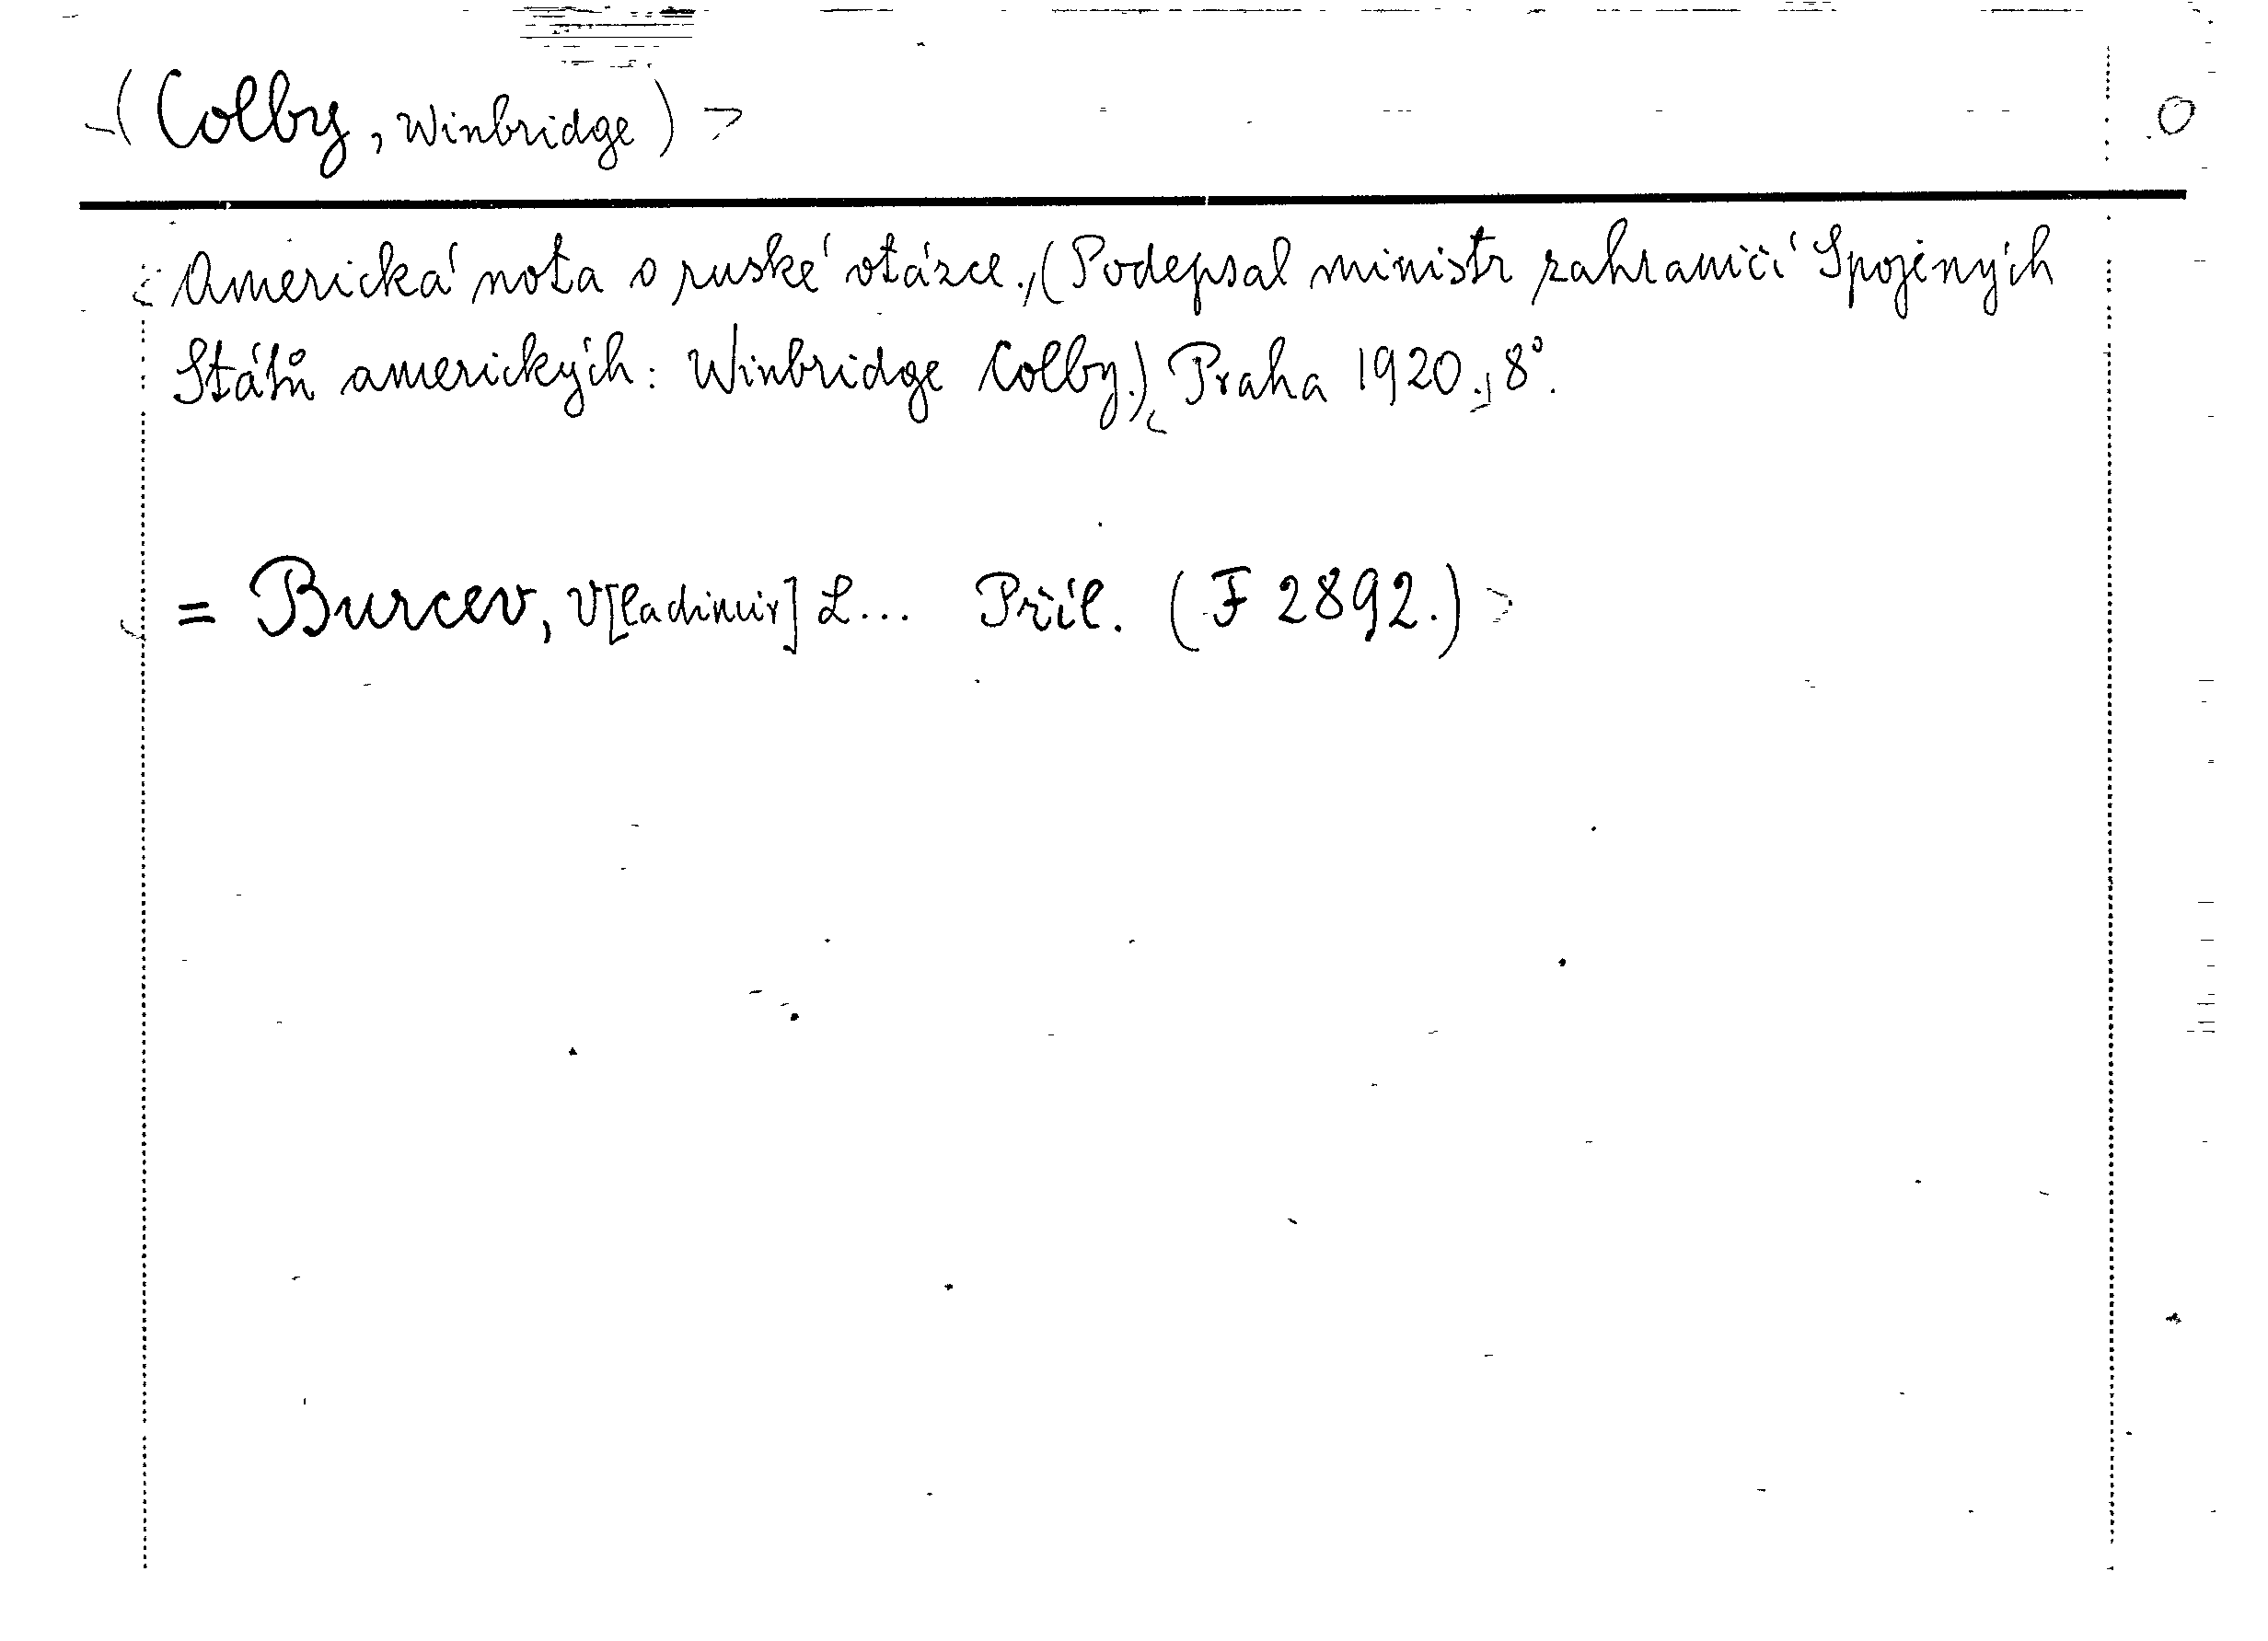 (Colby, Winbridge) O
Americká nota o ruské otázce., (Podepsal ministr zahraničí Spojených
Států amerických: Winbridge Colby.) Praha 1920., 8°.
= Burcev, V[ladimir] L... Příl. (F 2892.)